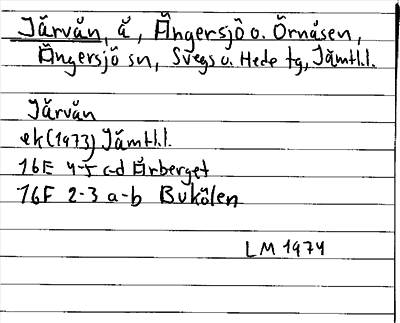 Järvån, å, Ängersjö o. Örnåsen,
Ängersjö sn, Svegs o. Hede tg, Jämtl.l.
Järvån
ek (1973) Jämtl.l.
16E 4-5 c-d Årberget
16F 2-3 a-b Bukölen
LM 1974